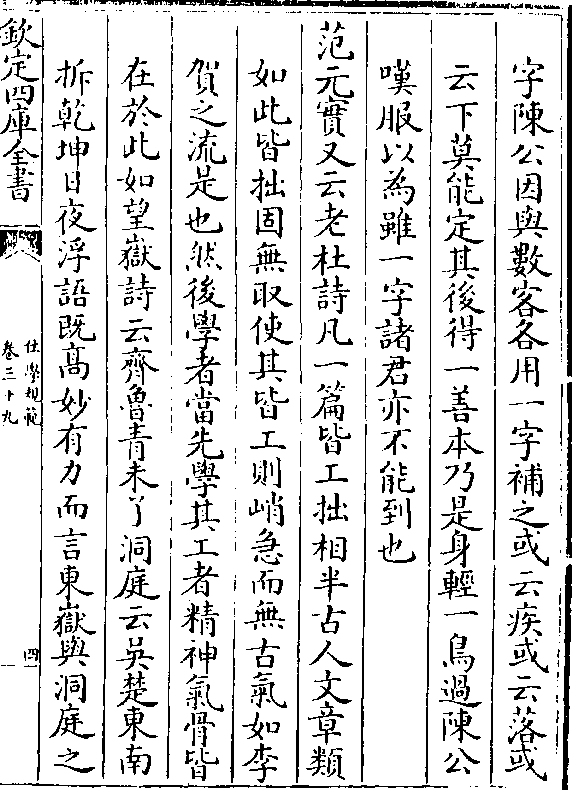 字陳公因與數客各用一字補之或云疾或云落或
云下莫能定其後得一善本乃是身輕一鳥過陳公
嘆服以為雖一字諸君亦不能到也
范元實又云老杜詩凡一篇皆工拙相半古人文章類
如此皆拙固無取使其皆工則峭急而無古氣如李
賀之流是也然後學者當先學其工者精神氣骨皆
在於此如望嶽詩云齊魯青未了洞庭云吳楚東南
拆乾坤日夜浮語既高妙有力而言東嶽與洞庭之
欽定四庫全書
仕學規範
卷三十九
四